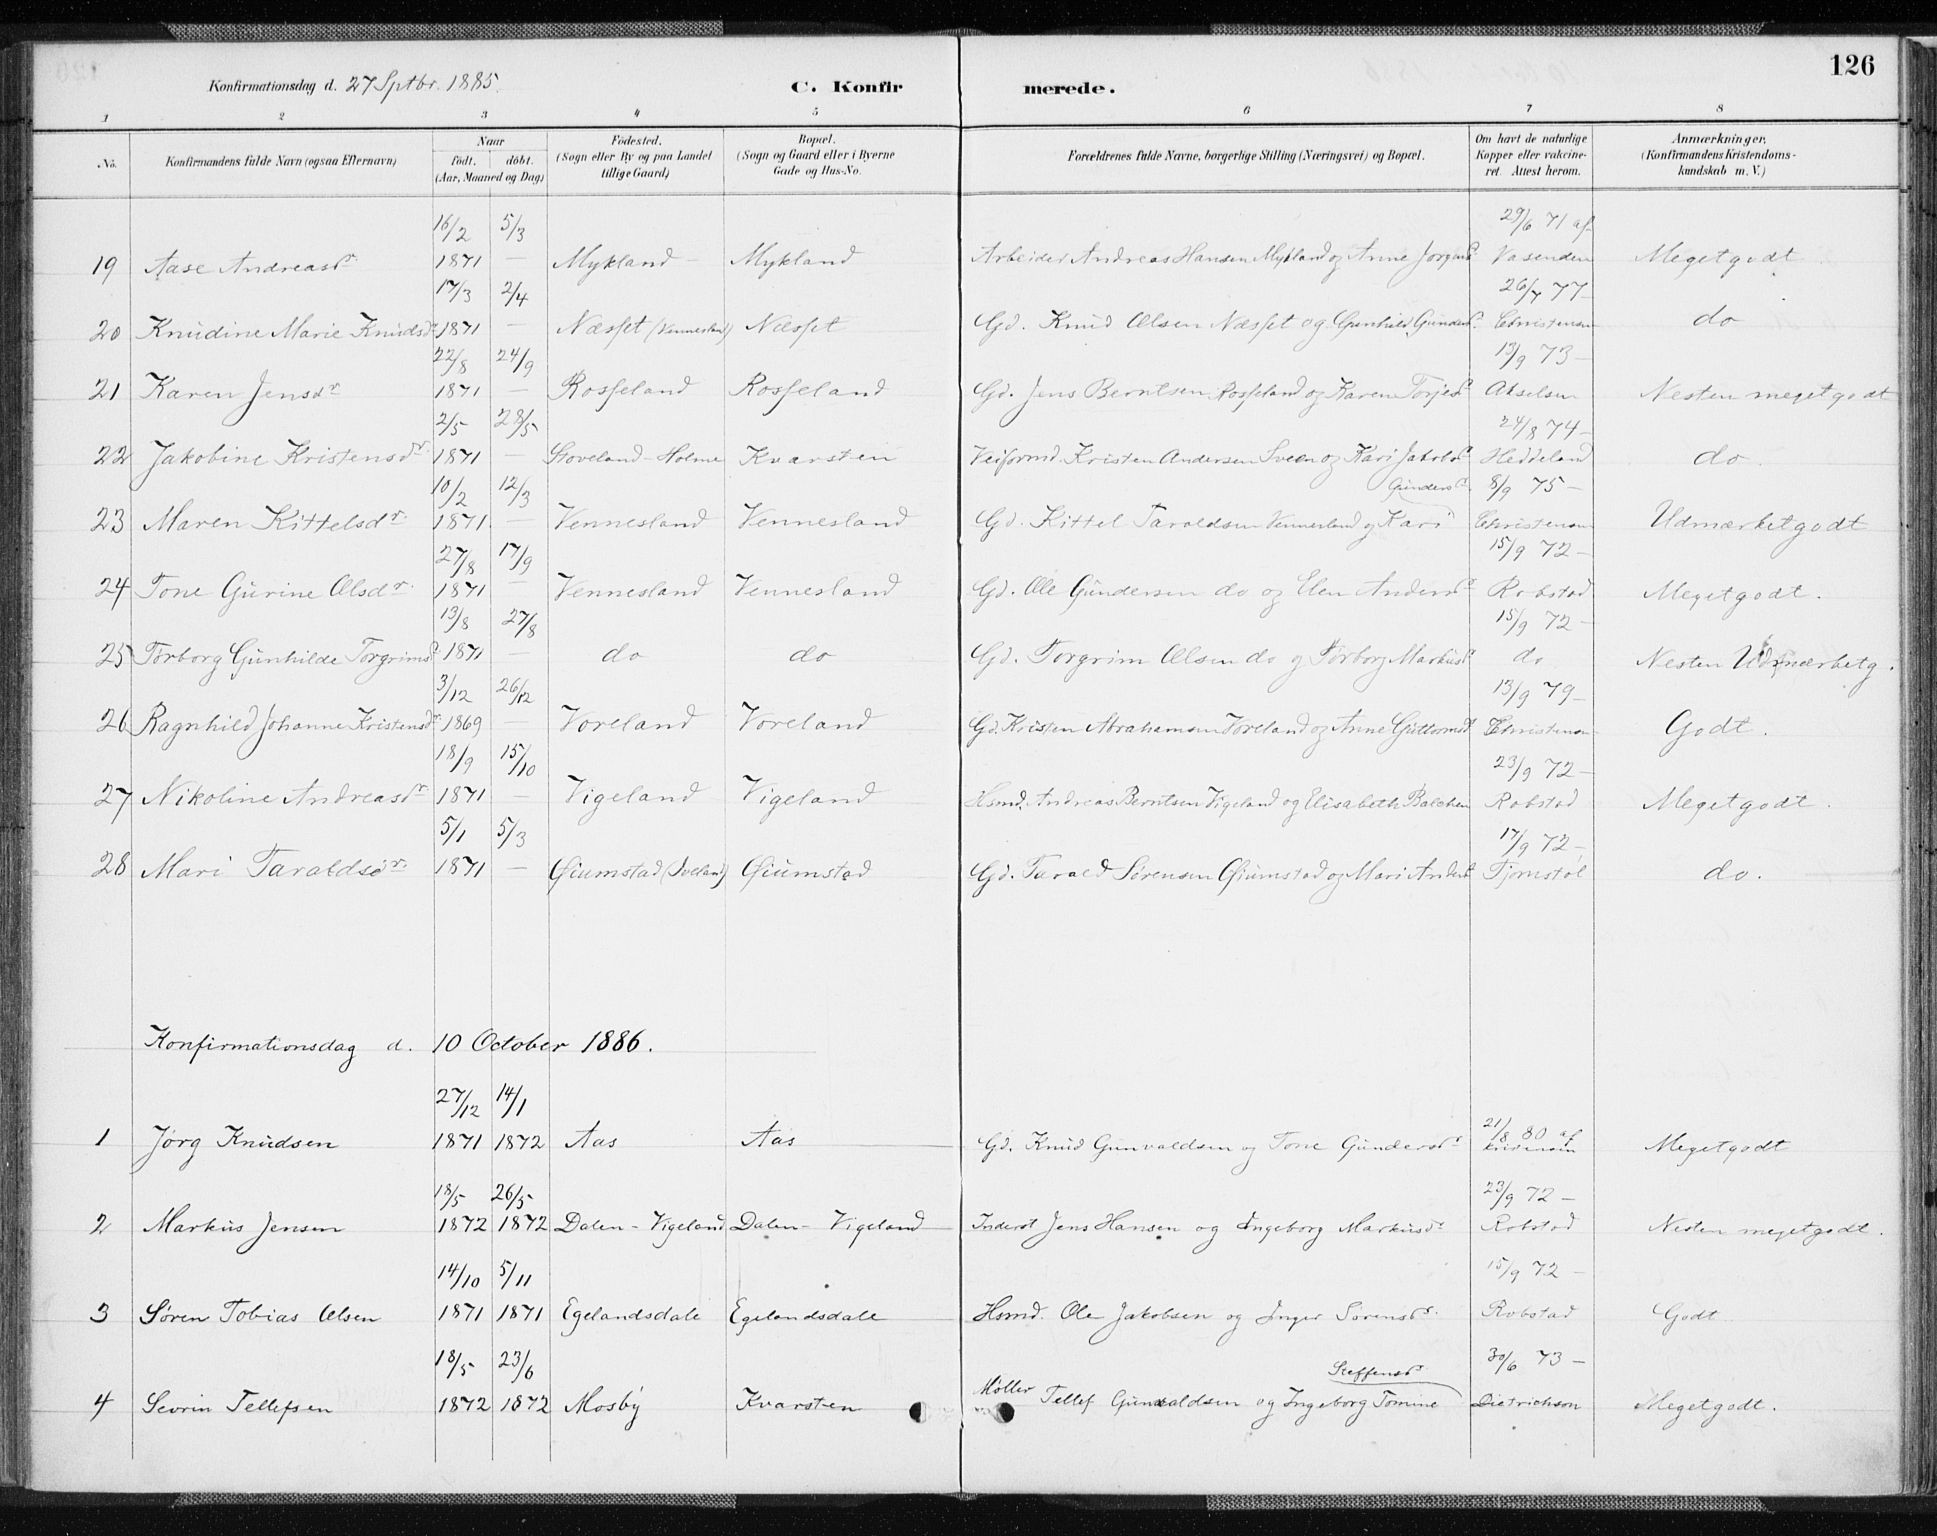 126
Konfirmationsdag d. 27 Sptbr. 1885.
C. Konfirmerede.
1 2 3 4 5 6 7 8
No. Konfirmandens fulde Navn (ogsaa Efternavn) Naar födt. döbt. (Aar, Maaned og Dag) Födested. (Sogn eller By og paa Landet tillige Gaard) Bopæl. (Sogn og Gaard eller i Byerne Gade og Hus-No. Forældrenes fulde Navne, borgerlige Stilling (Næringsvei) og Bopæl. Om havt de naturlige Kopper eller vakcineret. Attest herom. Anmærkninger. (Konfirmandens Kristendomskundskab m. V.)
16/2 5/3 29/6 71 af
19 Aase Andreasdr. 1871 — Mykland Mykland Arbeider Andreas Hansen Mykland og Anne Jørgensd Vasenden Megetgodt
17/3 2/4 26/7 77 —
20 Knudine Marie Knudsdr 1871 — Næsset (Vennesland) Næsset Gd. Knud Olsen Næsset og Gunhild Gundersd. Christensen do
22/8 24/9 13/9 73 —
21 Karen Jensdr 1871 — Rosseland Rosseland Gd. Jens Berntsen Rosseland og Karen Torjesd Akselsen Nesten megetgodt
2/5 28/5 24/8 74 —
22 Jakobine Kristensdr. 1871 — Stoveland - Holme Kvarsten Veiformd. Kristen Andersen Sveen og Kari Jakobsd Heddeland do.
10/2 12/3 Gundersd. 8/9 75 —
23 Maren Kittelsdr. 1871 — Vennesland Vennesland Gd. Kittel Taraldsen Vennesland og Kari Christensen Udmærketgodt
27/8 17/9 15/9 72 —
24 Tone Gurine Olsdr. 1871 — Vennesland Vennesland Gd. Ole Gundersen do og Elen Andersd Robstad Megetgodt.
13/8 27/8 15/9 72 —
25 Torborg Gunhilde Torgrimsd 1871 — do do Gd. Torgrim Olsen do og Torborg Markusd do Nesten Udmærketg.
3/12 26/12 13/9 79 —
26 Ragnhild Johanne Kristensdr 1869 — Voreland Voreland Gd. Kristen Abrahamsen Voreland og Anne Guttormsd Christensen Godt.
18/9 15/10 23/9 72 —
27 Nikoline Andreasdr 1871 — Vigeland Vigeland Hsmd. Andreas Berntsen Vigeland og Elisabeth Balchen Robstad Megetgodt.
5/1 5/3 17/9 72 —
28 Mari Taraldsdr. 1871 — Øiumstad (Iveland) Øiumstad Gd. Tarald Sørensen Øiumstad og Mari Andersd Tjomstøl do.
Konfirmationsdag d. 10 October 1886.
27/12 14/1 21/8 80 af
1 Jørg Knudsen 1871 1872 Aas Aas Gd. Knud Gunvaldsen og Tone Gundersdr Kristensen Megetgodt
18/5 26/5 23/9 72 —
2 Markus Jensen 1872 1872 Dalen - Vigeland Dalen - Vigeland Inderst Jens Hansen og Ingeborg Markusdr Robstad Nesten megetgodt.
14/10 5/11 15/9 72 —
3 Søren Tobias Olsen 1871 1871 Egelandsdale Egelandsdale Hsmd. Ole Jakobsen og Inger Sørensdr. Robstad Godt
18/5 23/6 Steffensd. 30/6 73 —
4 Sevrin Tellefsen 1872 1872 Mosby Kvarsten Møller Tellef Gunvaldsen og Ingeborg Tomine Dietrichson Megetgodt.